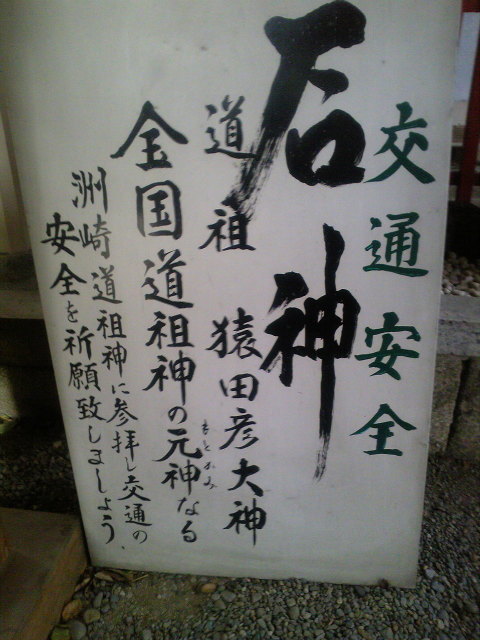 交通安全
石神
道祖 猿田彦大神
全国道祖神の元神なる
もとがみ
洲崎道祖神に参拝し交通の
安全を祈願致しましょう。